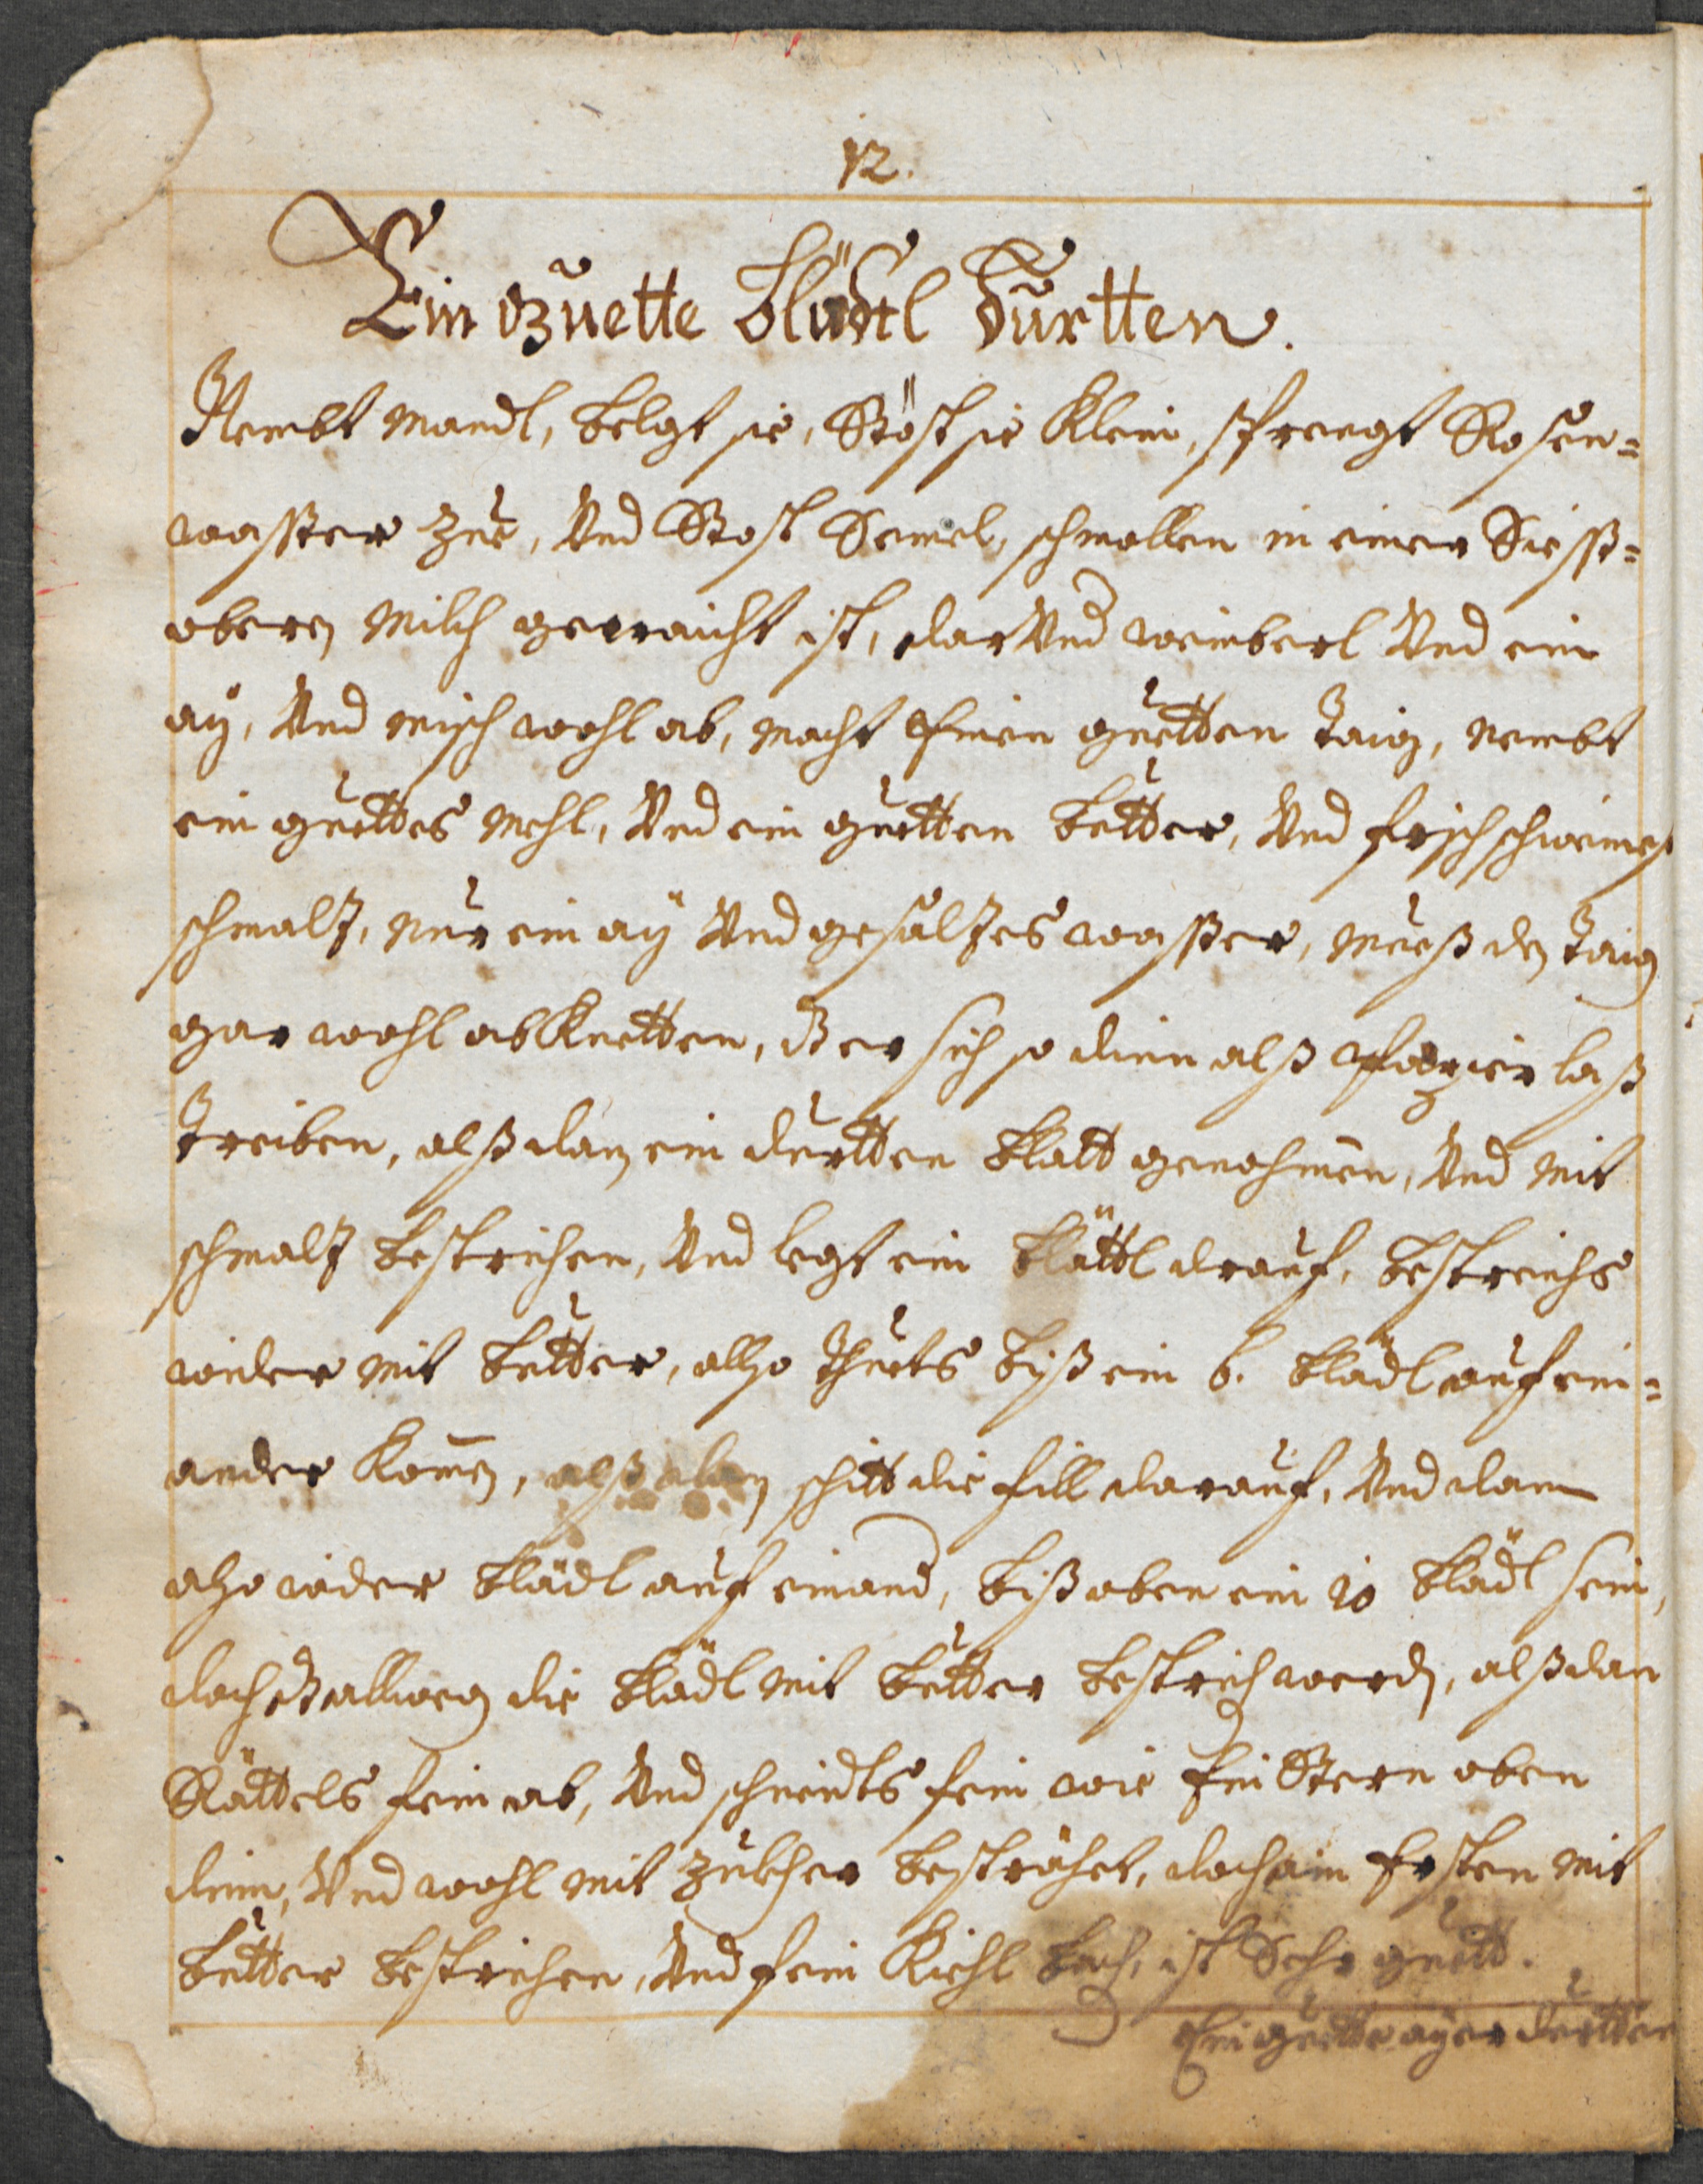 12.
Ein guette blädtl Durtten.
Nembt mandl, belgt sie, Stöst sie klein, sprengt Rosen=
wasser zue, Und Stost Semel, schmollen in einer Siess=
oberen Milch gewaicht ist, dar Und weinberl Und ein
aÿ, Und misch wohl ab, macht Einen guetten taig, nembt
ein guettes mehl, Und ein guetten butter, Und frisch schweines
schmaltz, nur ein aÿ Und gesaltzes wasser, muess den taig
gar wohl abknetten, dß er sich so dinn alss Papier lass
treiben, alss dan ein durtten blatt genohmen, Und mit
schmaltz bestrichen, Und legt ein blättl drauf, bestreichs
wider mit butter, also thuets biss ein 6. bladl auf ein=
ander komen, alss dan schitt die fill darauf, Und dann
also wider blädl auf einand, biss oben ein 10 blädl sein,
doch dß alweg die blädl mit butter bestrich werden, alss dan
Rättels fein ab, Und schneidts fein wie Ein Stern oben
drein, Und wohl mit Zukher besträhet, doch am Ersten mit
butter bestrichen, Und fein kiehl bach, ist Sehr guett.
Ein guette aÿer durtten